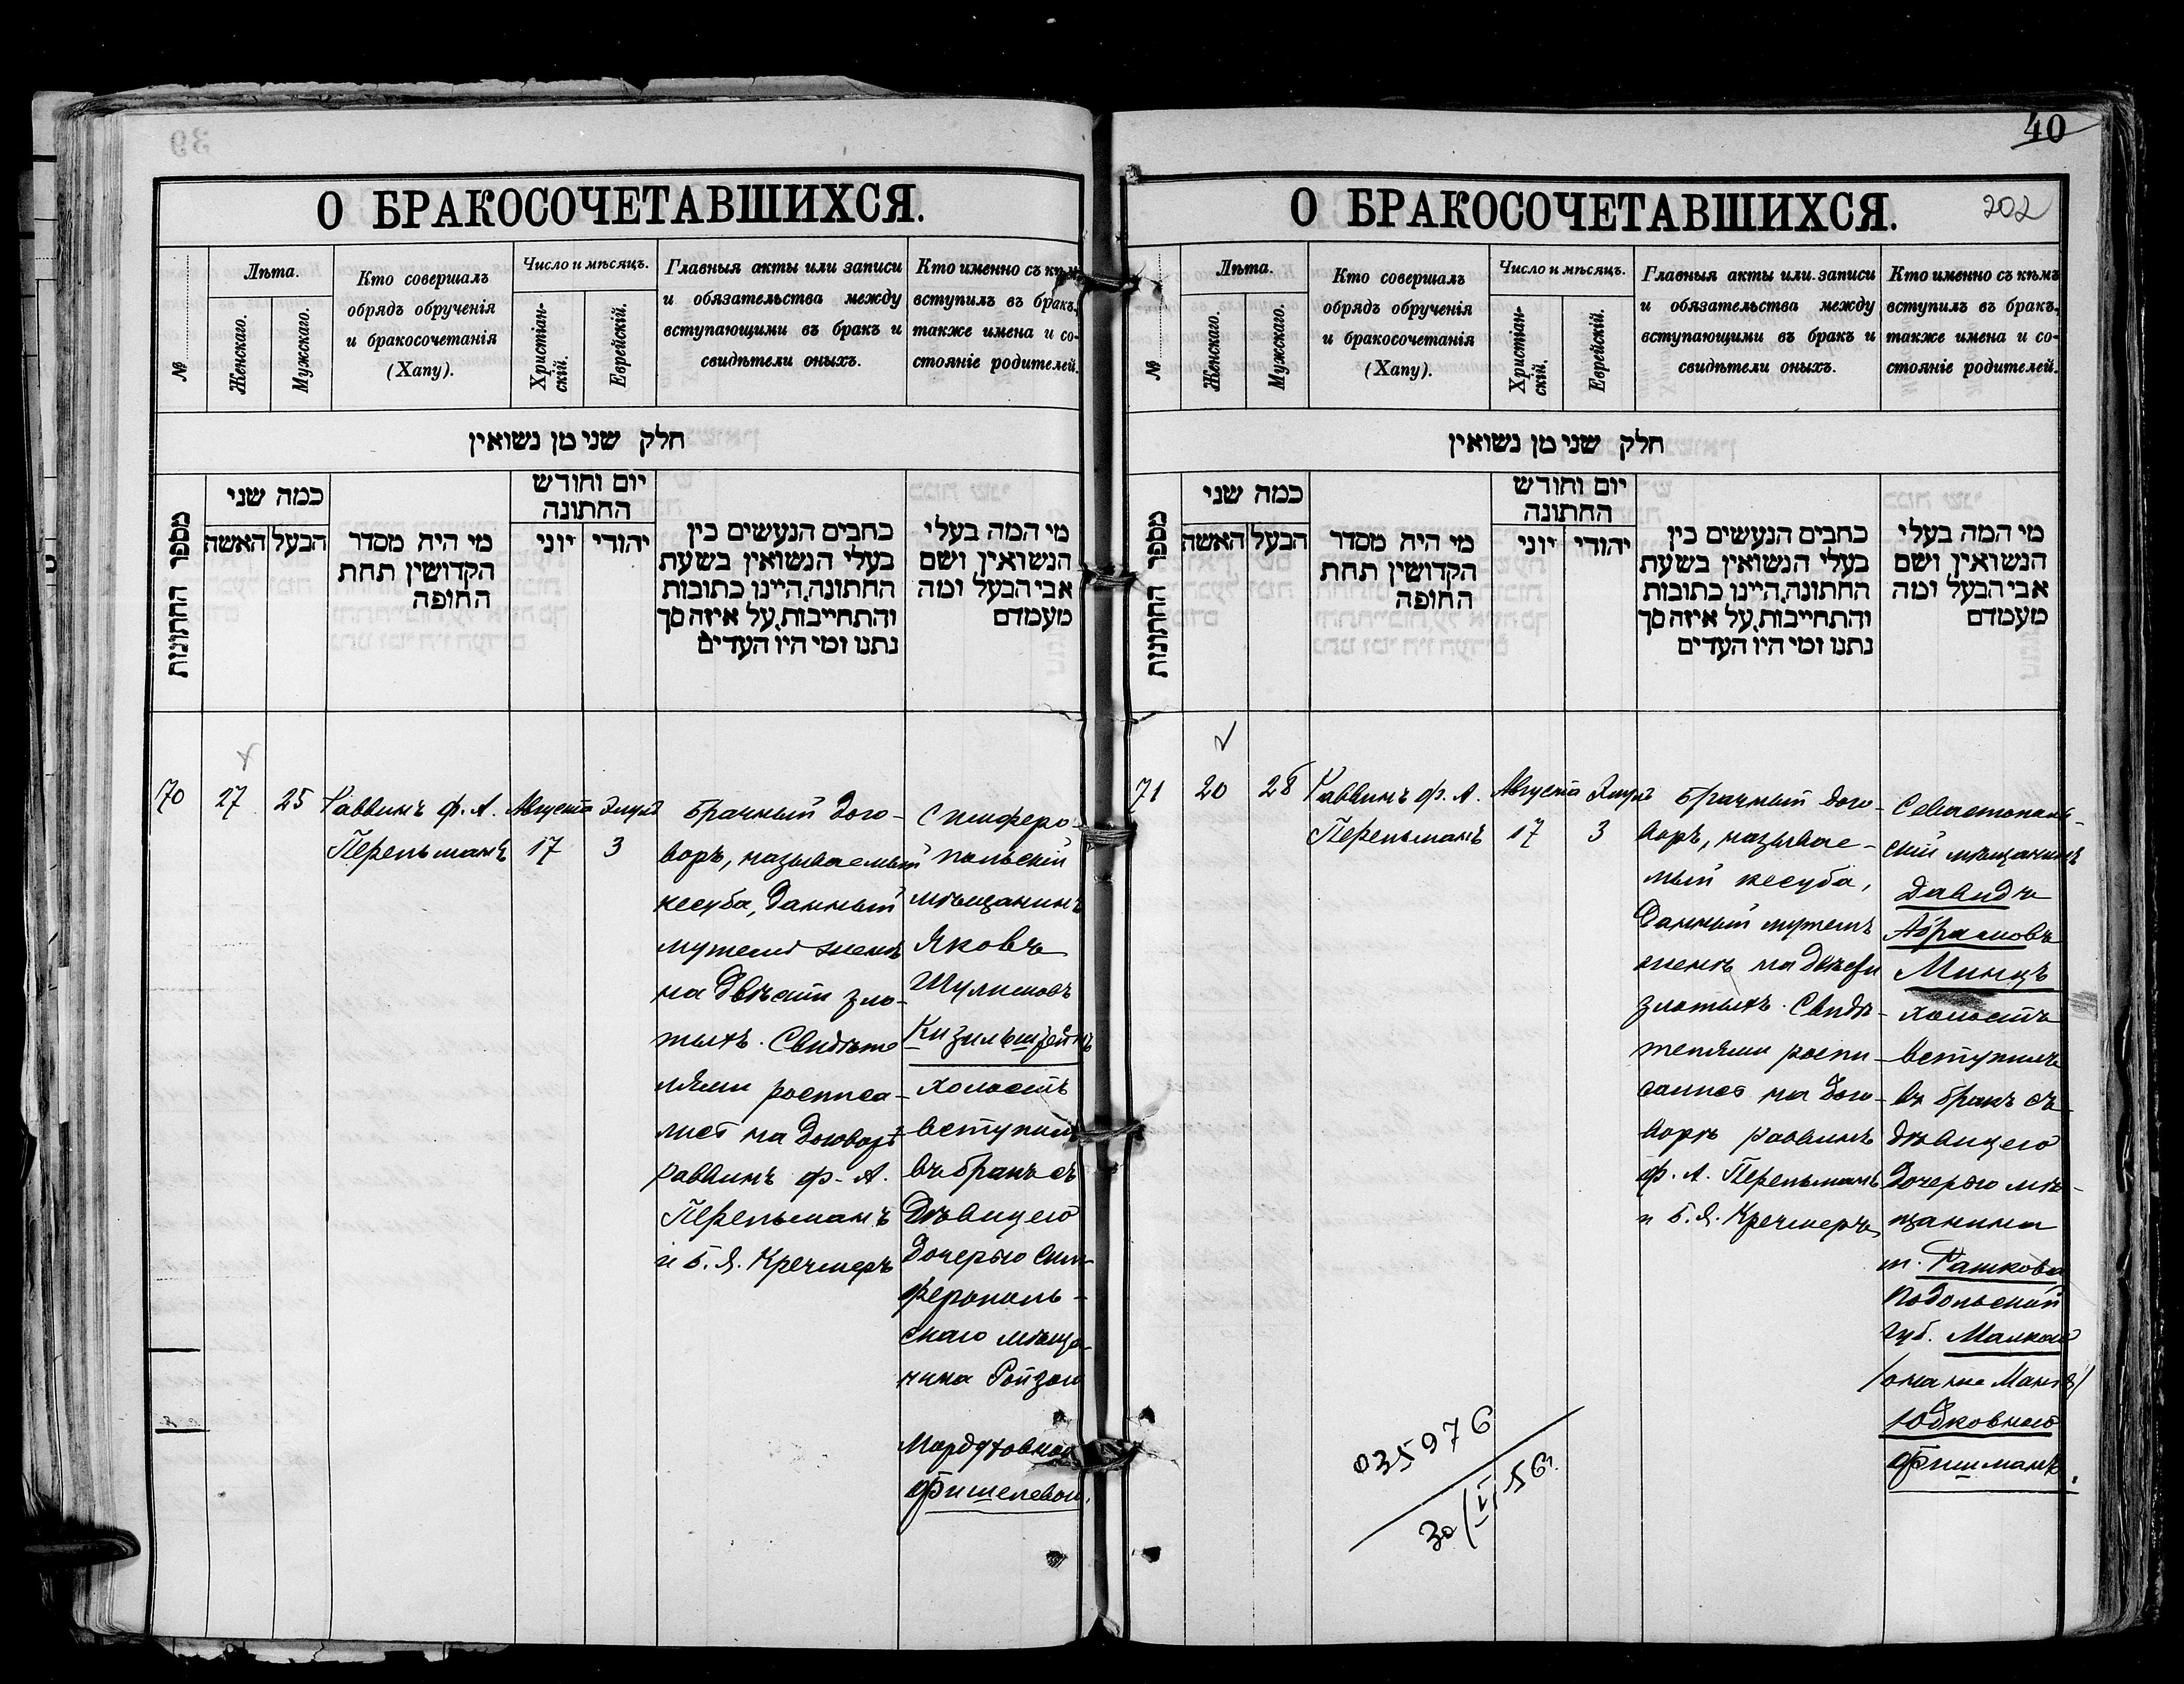 40
О БРАКОСОЧЕТАВШИХСЯ.
№
Лѣта.
Женскаго.
Мужскаго.
Кто совершалъ
обрядъ обрученія
и бракосочетанія
(Хапу).
Число и мѣсяцъ.
Христіан-
скій.
Еврейскій.
Главныя акты или записи
и обязательства между
вступающими въ бракъ и
свидѣтели оныхъ.
Кто именно съ кѣмъ
вступилъ въ бракъ,
также имена и со-
стояніе родителей.
חלק שני מן נשואין
מספר החתונות
כמה שני
האשה
הבעל
מי היה מסדר
הקדושין תחת
החופה
יום וחודש
החתונה
יוני
יהודי
כתבים הנעשים בין
בעלי הנשואין בשעת
החתונה, היינו כתובות
והתחייבות, על איזה סך
נתנו ומי היו העדים
מי המה בעלי
הנשואין ושם
אבי הבעל ומה
מעמדם
70
27
25
Раввинъ Ф. А.
Перельманъ
Августа
17
Элулъ
3
Брачный дого-
воръ, называемый
кесуба, данный
мужемъ женѣ
на двѣсти зло-
тыхъ. Свидѣте
лями росписа-
лись на договорѣ
раввинъ Ф. А.
Перельманъ
и Б. Я. Кречмеръ
Симферо-
польскій
мѣщанинъ
Яковъ
Шулимовъ
Кизильштейнъ
холостъ
вступилъ
въ бракъ съ
дѣвицею
дочерью Сим-
ферополь-
скаго мѣща-
нина Ройзою
Мордуховною
Фишелевою.
О БРАКОСОЧЕТАВШИХСЯ.
202
№
Лѣта.
Женскаго.
Мужскаго.
Кто совершалъ
обрядъ обрученія
и бракосочетанія
(Хапу).
Число и мѣсяцъ.
Христіан-
скій.
Еврейскій.
Главныя акты или записи
и обязательства между
вступающими въ бракъ и
свидѣтели оныхъ.
Кто именно съ кѣмъ
вступилъ въ бракъ,
также имена и со-
стояніе родителей.
חלק שני מן נשואין
מספר החתונות
כמה שני
האשה
הבעל
מי היה מסדר
הקדושין תחת
החופה
יום וחודש
החתונה
יוני
יהודי
כתבים הנעשים בין
בעלי הנשואין בשעת
החתונה, היינו כתובות
והתחייבות, על איזה סך
נתנו ומי היו העדים
מי המה בעלי
הנשואין ושם
אבי הבעל ומה
מעמדם
71
20
28
Раввинъ Ф. А.
Перельманъ
Августа
17
Элулъ
3
Брачный дого-
воръ, называе-
мый кесуба,
данный мужемъ
женѣ на двѣсти
злотыхъ. Свидѣ-
телями роспи-
сались на дого-
ворѣ раввинъ
Ф. А. Перельманъ
и Б. Я. Кречмеръ
Севастополь-
скій мѣщанинъ
Давидъ
Абрамовъ
Минцъ
холостъ
вступилъ
въ бракъ съ
дѣвицею
дочерью мѣ-
щанина
м. Рашкова
Подольской
губ. Малкою
/она же Маня/
Юдковною
Фишманъ.
035976
30/VI 56г.